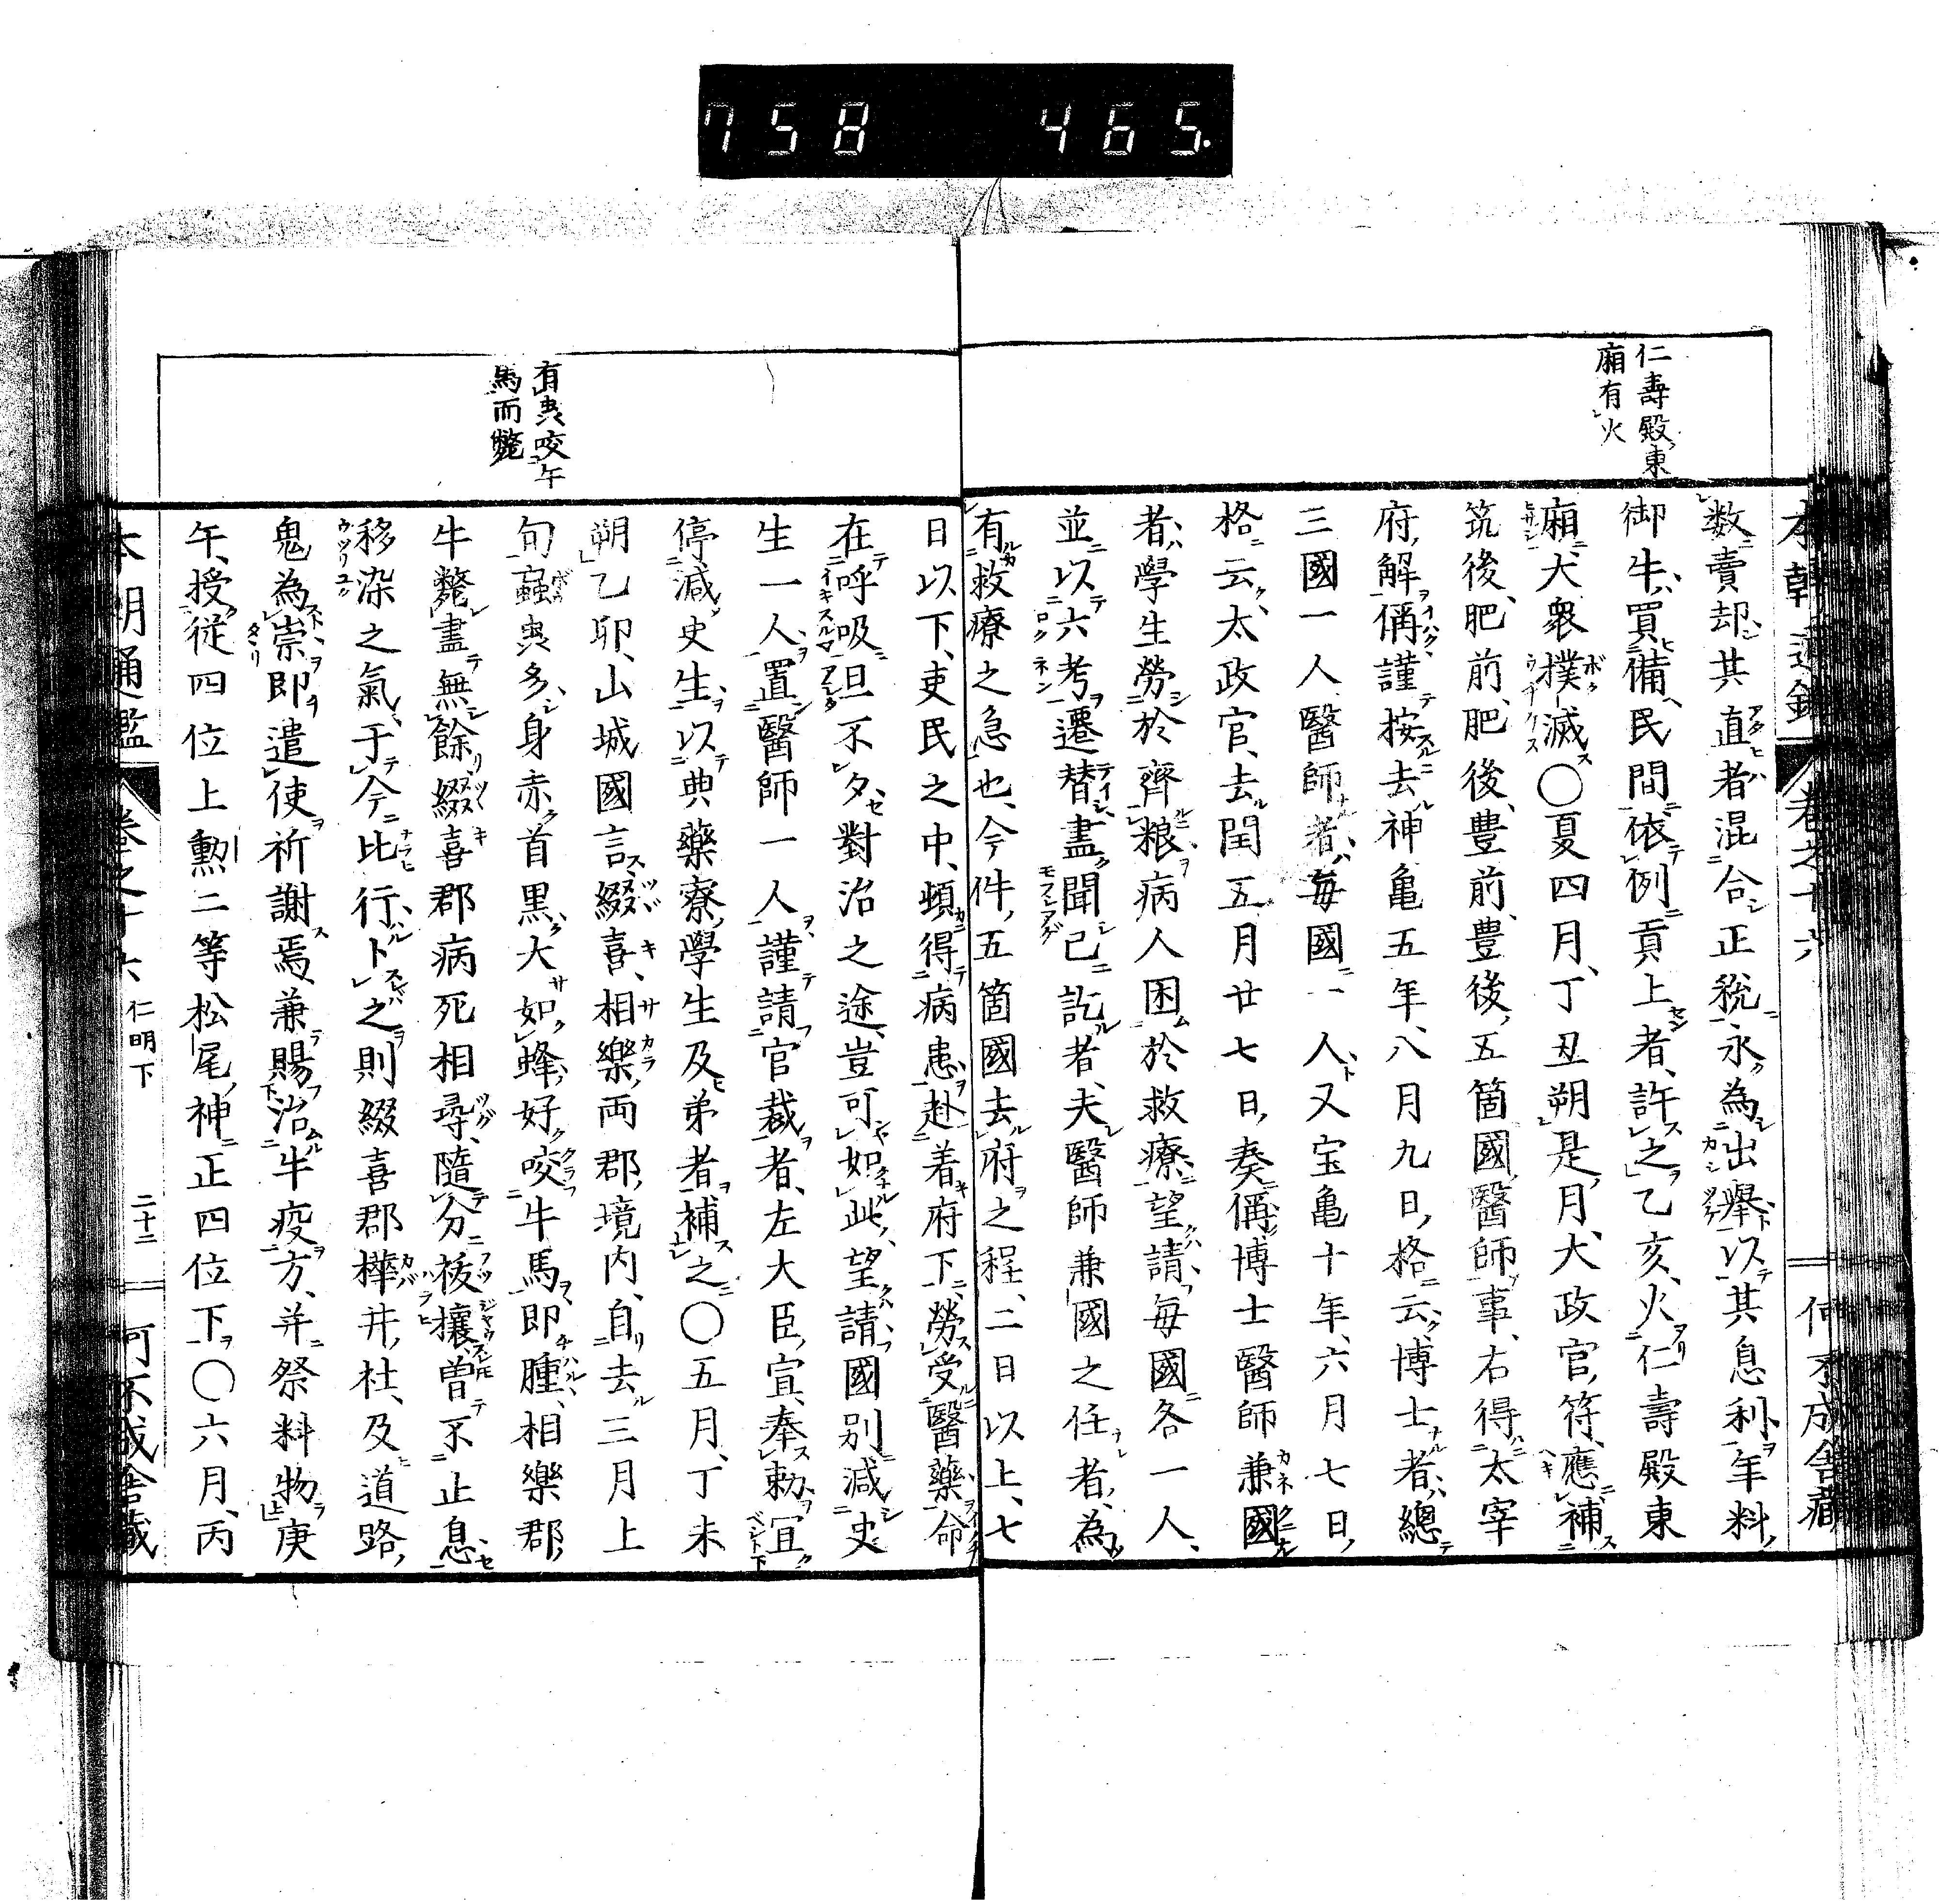 758 465.
仁壽殿東
廂有火
本朝通鑑 卷之十六 何不成舍藏
数賣却其直者混合正税永為出擧以其息利年料
御牛買備民間依例貢上者許之乙亥火仁壽殿東
廂犬衆撲滅〇夏四月丁丑朔是月大政官符應補
筑後肥前肥後豊前豊後五箇國醫師事右得太宰
府解偁謹按去神亀五年八月九日格云博士者總
三國一人醫師者毎國一人又宝亀十年六月七日
格云太政官去閏五月廿七日奏偁博士醫師兼國
者學生勞於齊粮病人困於救療望請毎國各一人
並以六考遷替盡聞已訖者夫醫師兼國之任者為
有救療之急也今件五箇國去府之程二日以上七
日以下吏民之中頓得病患赴着府下勞受醫藥命
在呼吸旦不夕對治之途豈可如此望請國别減史
生一人置醫師一人謹請官裁者左大臣宣奉勅宜
停減史生以典藥寮學生及弟者補之〇五月丁未
朔乙卯山城國言綴喜相樂両郡境内自去三月上
旬蝨蛬多身赤首黒大如蜂好咬牛馬即腫相樂郡
牛斃盡無餘綴喜郡病死相尋隨分祓攘曽不止息
移染之氣于今比行卜之則綴喜郡樺井社及道路
鬼為崇即遣使祈謝焉兼賜治牛疫方并祭料物庚
午授従四位上勲二等松尾神正四位下〇六月丙
有 咬午
馬而斃
本朝通鑑 卷之十六 仁明下 二十二 何不成舍藏